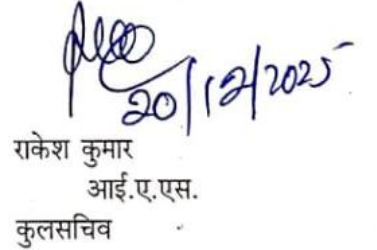 20/12/2025
राकेश कुमार
आई.ए.एस.
कुलसचिव